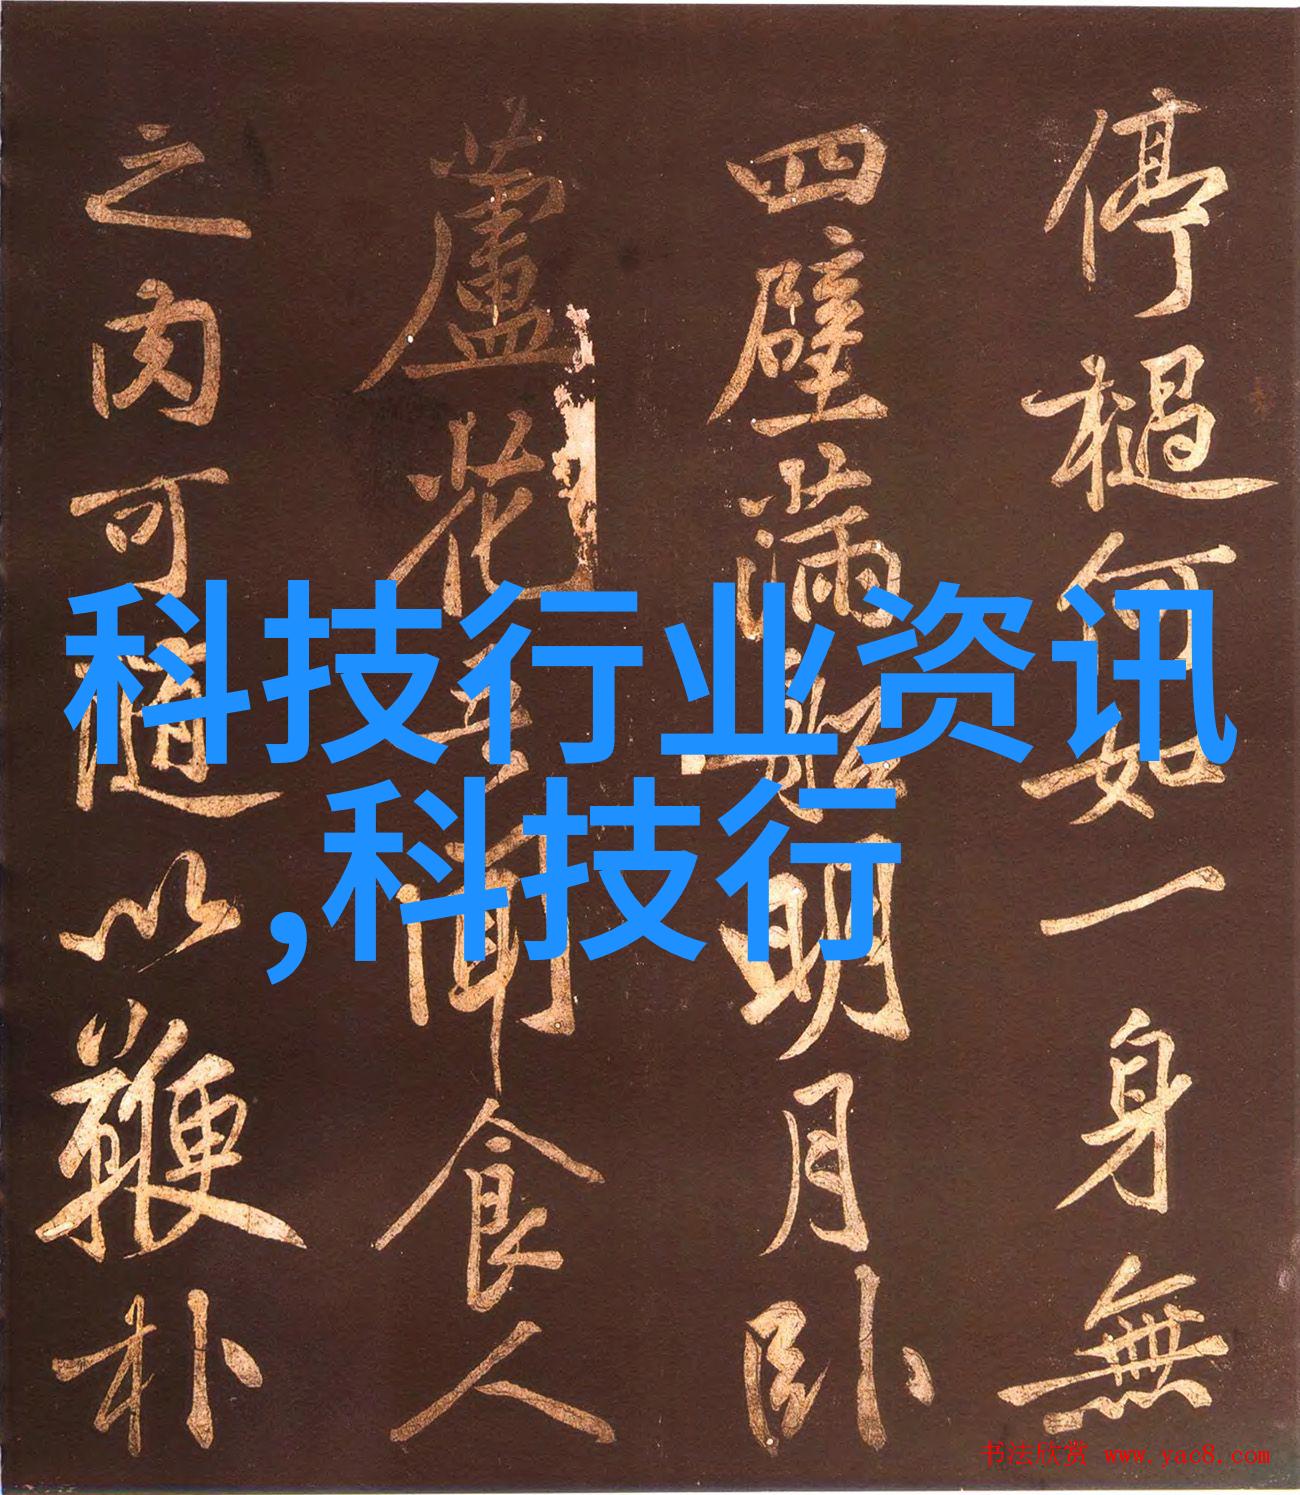 停檛何如一身無
四壁滿明月卧
蘆花聞食人
之肉可隨以鞭朴
科技行业资讯
,科技行
书法欣赏 www.yac8.com